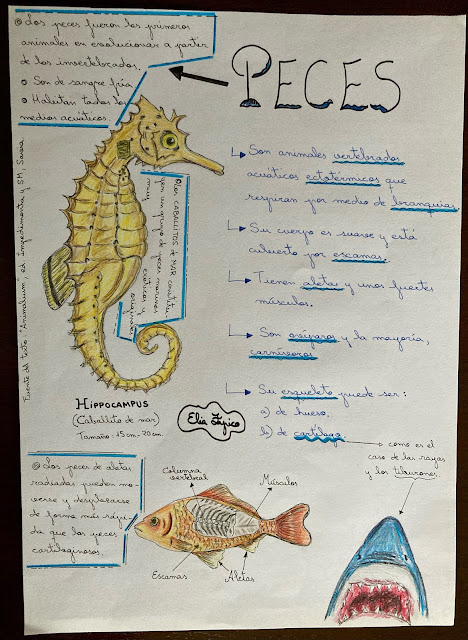 PECES
Los peces fueron los primeros
animales en evolucionar a partir
de los invertebrados.
Son de sangre fría
Habitan todos los
medios acuáticos.
Son animales vertebrados
acuáticos ectotérmicos que
respiran por medio de branquias
Su cuerpo es suave y está
cubierto por escamas.
Tienen aletas y unos fuertes
músculos.
Son ovíparos y la mayoría,
carnívoros
Su esqueleto puede ser:
a) de hueso.
b) de cartílago.
como es el
caso de las rayas
y los tiburones.
Los CABALLITOS de MAR constitu-
yen un grupo de peces marinos
muy exóticos y
originales
Fuente del texto: "Animalium", ed. impedimenta y SM, Savia
HIPPOCAMPUS
(Caballito de mar)
Tamaño: 15cm-20cm.
Elia
Los peces de aletas
radiadas pueden mo-
verse y desplazarse
de forma más rápi-
da que los peces
cartilaginosos.
Columna
vertebral
Músculos
Escamas
Aletas